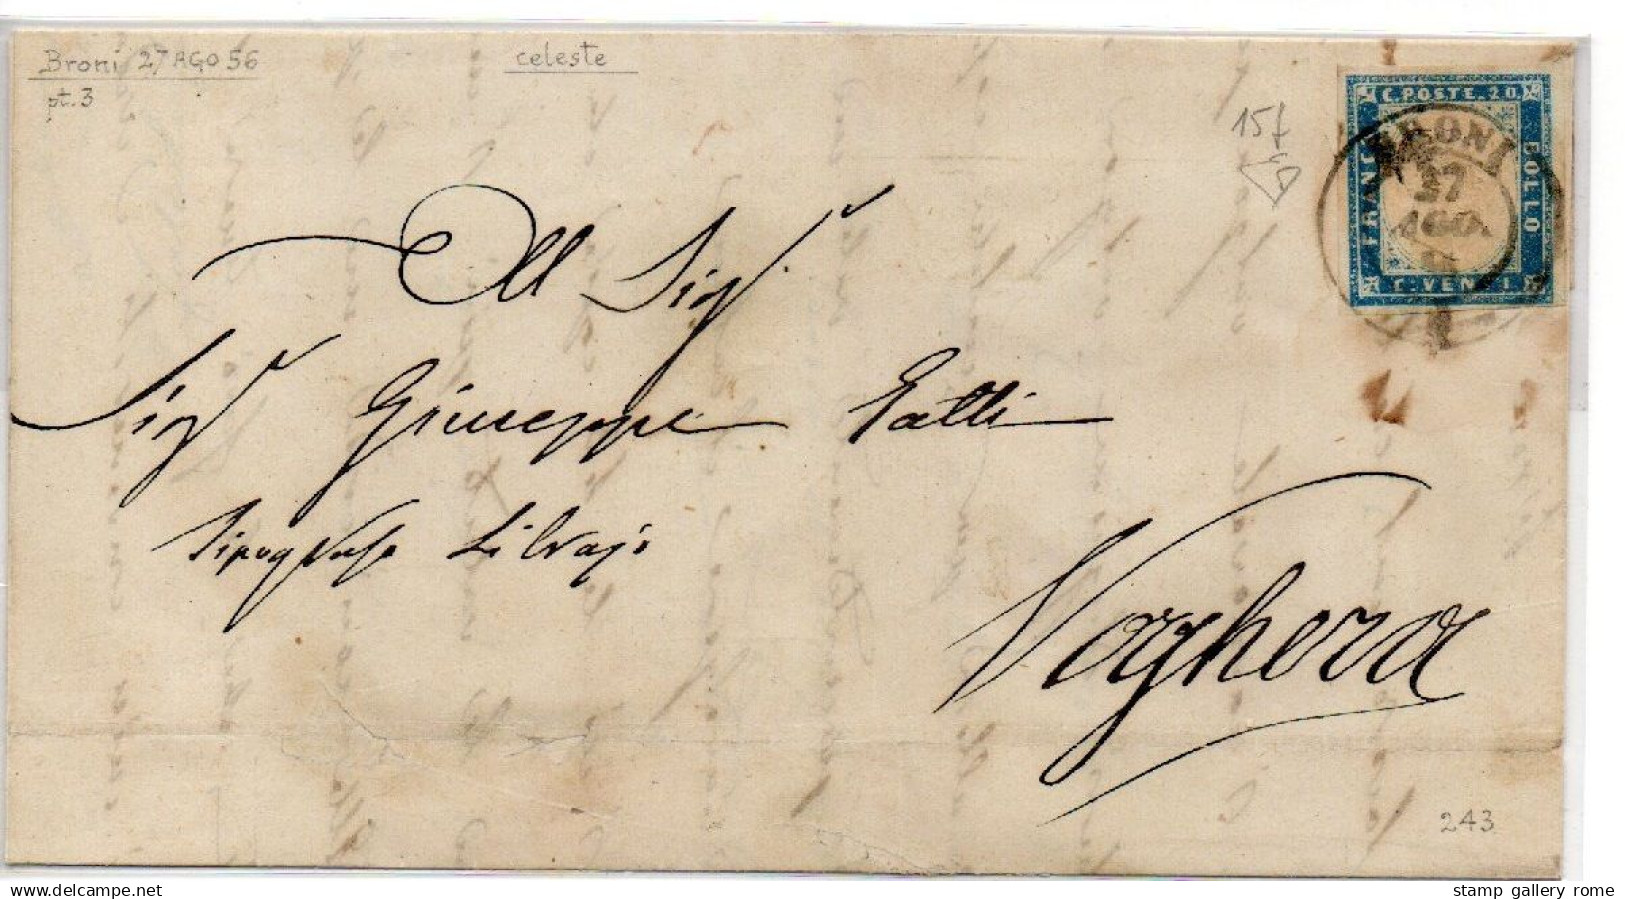 Broni 27 AGO 56
celeste
pt. 3
15f
C. POSTE. 20.
FRANCO
BOLLO
C. VENTI.
BRONI
27
AGO
All Sigr
Sigr Giuseppe Gatti
Voghera
243
www.delcampe.net
stamp gallery rome